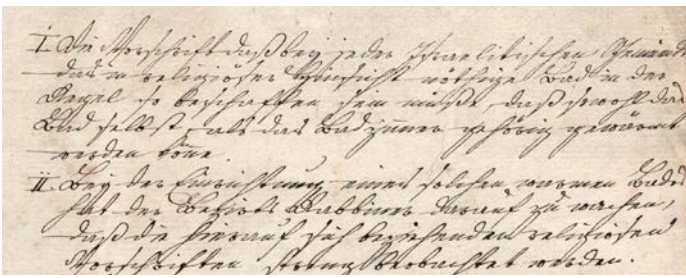 I. Die Vorschrift daß bey jeder Israelitischen Gemeinde
das in religiöser Hinsicht nöthige Bad in der
Regel so beschaffen sein müße, daß sowohl das
Bad selbst, als das Badzimmer gehörig gewärmt
werden könne.
II. Bey der Einrichtung eines solchen warmen Bades
hat der Bezirks Rabbiner darauf zu wachen,
daß die hierauf sich beziehenden religiösen
Vorschriften streng beobachtet werden.